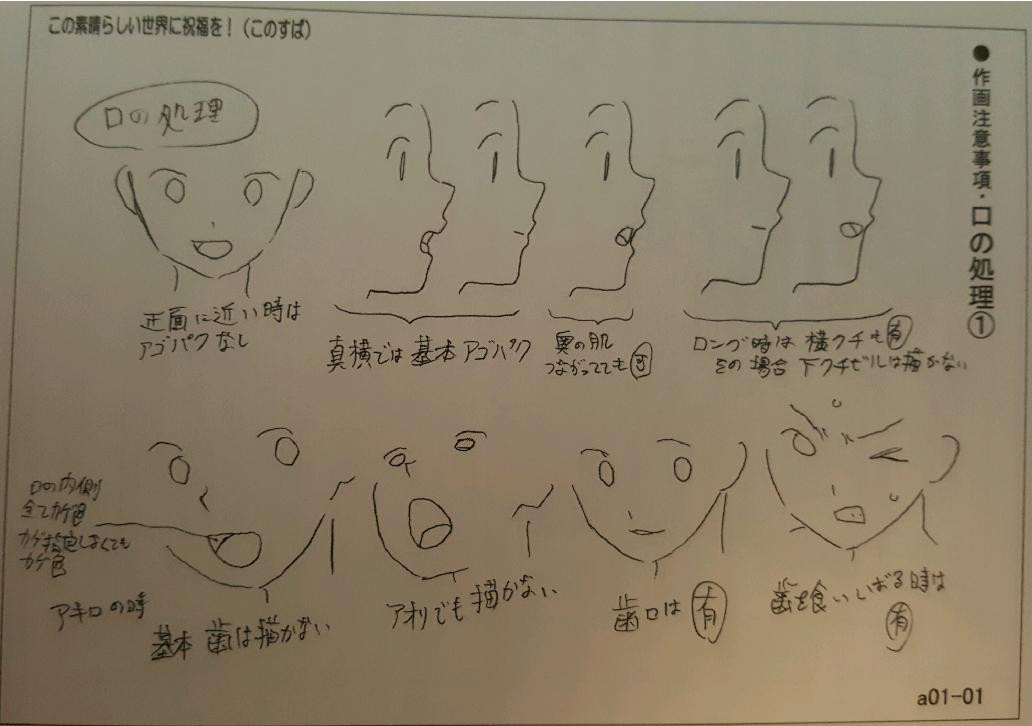 この素晴らしい世界に祝福を!（このすば）
●作画注意事項・口の処理①
口の処理
正面に近い時は
アゴパクなし
真横では基本アゴパク
奥の肌
つながってても可
ロング時は横クチも有
その場合下クチビルは描かない
口の内側
全てカゲ色
カゲ指定しなくても
カゲ色
アキ口の時
基本歯は描かない
アオリでも描かない
歯口は有
歯を食いしばる時は
有
a01-01